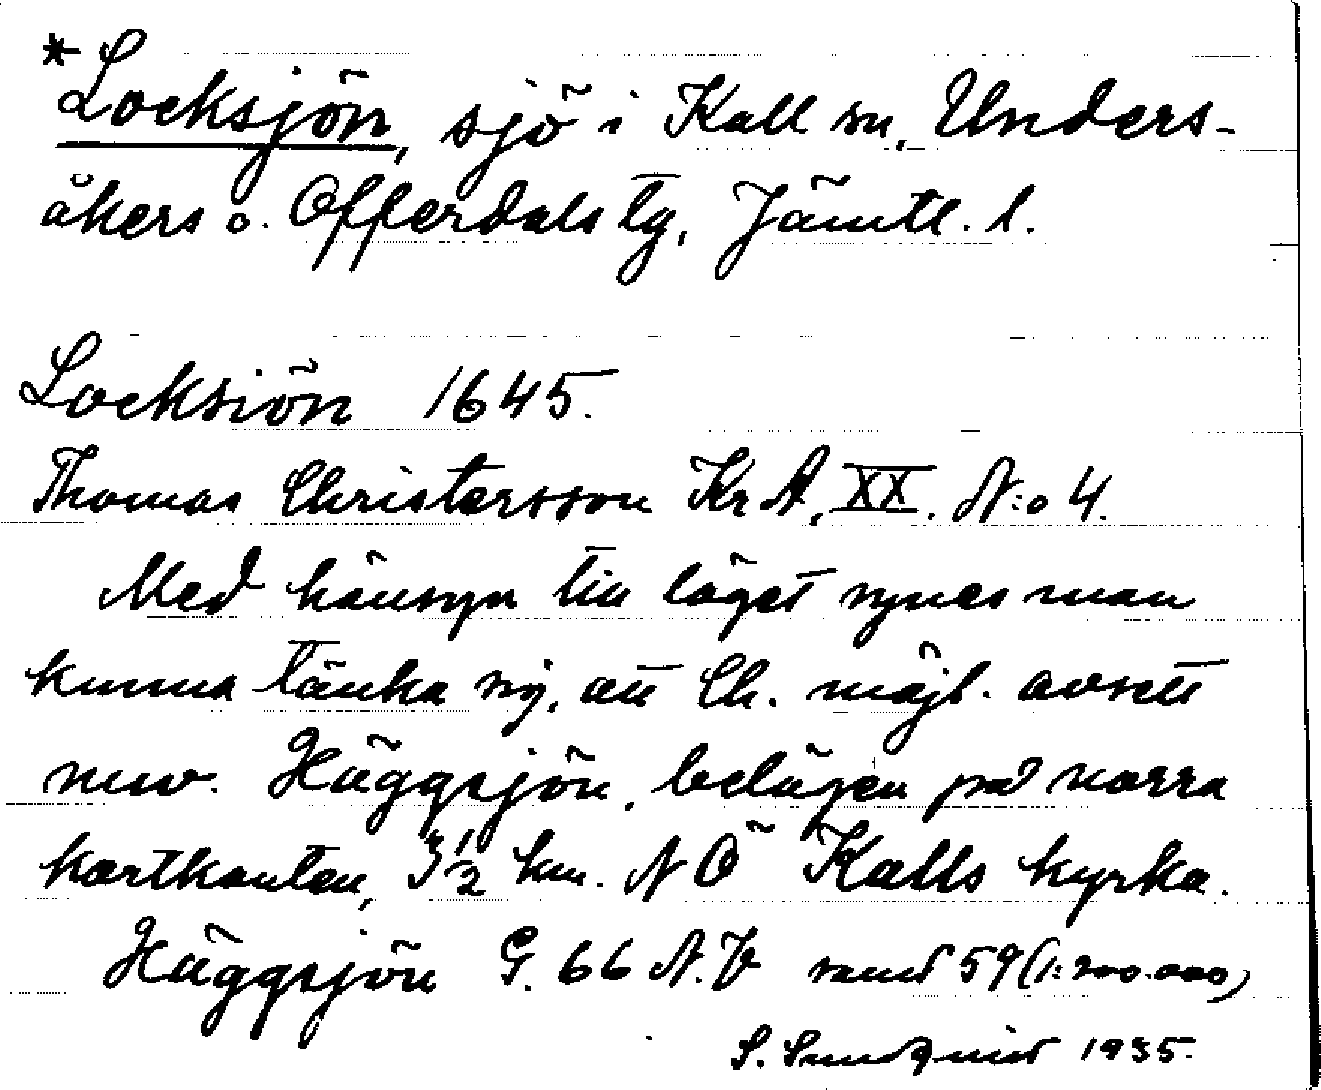 *Locksjön, sjö i Kall sn, Unders-
åkers o. Offerdals tg, Jämtl. l.
Locksiön 1645.
Thomas Christersson Kr A, XX. N:o 4.
Med hänsyn till läget synes man
kunna tänka sig, att Ch. möjl. avsett
nuv. Häggsjön, belägen på norra
kartkanten, 3 1/2 km. NÖ Kalls kyrka.
Häggsjön G. 66 N.V samt 59 (1:200.000)
S. Sundquist 1935.